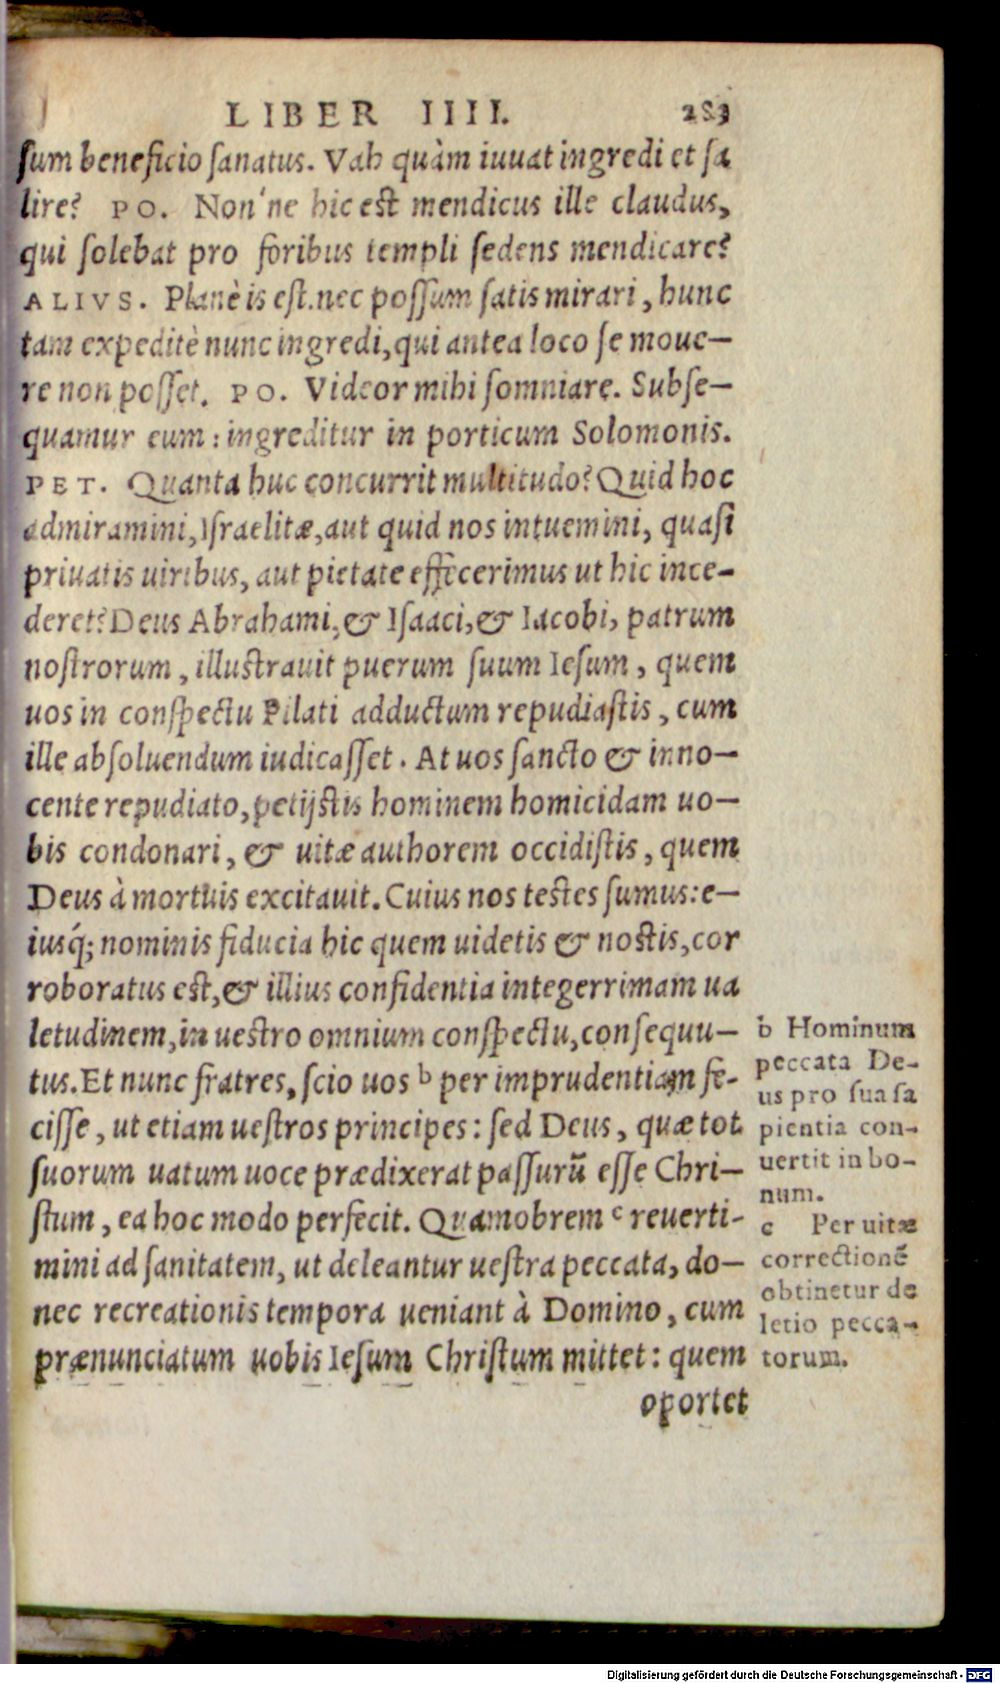 LIBER IIII. 283
sum beneficio sanatus. Vah quàm iuuat ingredi et sa
lire? PO. Non'ne hic est mendicus ille claudus,
qui solebat pro foribus templi sedens mendicare?
ALIVS. Planè is est. nec possum satis mirari, hunc
tam expeditè nunc ingredi, qui antea loco se moue-
re non posset. PO. Videor mihi somniare. Subse-
quamur eum: ingreditur in porticum Solomonis.
PET. Quanta huc concurrit multitudo? Quid hoc
admiramini, Israelitæ, aut quid nos intuemini, quasi
priuatis uiribus, aut pietate effecerimus ut hic ince-
deret? Deus Abrahami, & Isaaci, & Iacobi, patrum
nostrorum, illustrauit puerum suum Iesum, quem
uos in conspectu Pilati adductum repudiastis, cum
ille absoluendum iudicasset. At uos sancto & inno-
cente repudiato, petijstis hominem homicidam uo-
bis condonari, & uitæ authorem occidistis, quem
Deus à mortuis excitauit. Cuius nos testes sumus: e-
iusq́; nominis fiducia hic quem uidetis & nostis, cor
roboratus est, & illius confidentia integerrimam ua
letudinem, in uestro omnium conspectu, consequu-
tus. Et nunc fratres, scio uos b per imprudentiam fe-
cisse, ut etiam uestros principes: sed Deus, quæ tot
suorum uatum uoce prædixerat passurũ esse Chri-
stum, ea hoc modo perfecit. Quamobrem c reuerti-
mini ad sanitatem, ut deleantur uestra peccata, do-
nec recreationis tempora ueniant à Domino, cum
prænunciatum uobis Iesum Christum mittet: quem
oportet
b Hominum
peccata De-
us pro sua sa
pientia con-
uertit in bo-
num.
c Per uitæ
correctionẽ
obtinetur de
letio pecca-
torum.
Digitalisierung gefördert durch die Deutsche Forschungsgemeinschaft - DFG